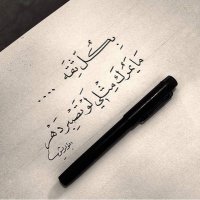 بِكُلِّ ثِقَه ....
مَا عِندَك مِثْلِي لَوْ تَصِير دَهْر